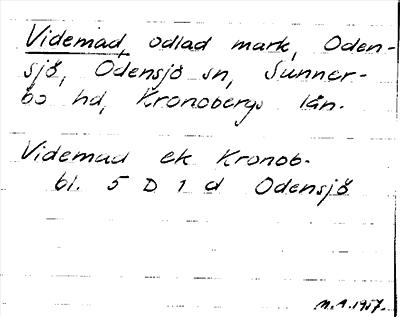 Videmad, odlad mark, Oden-
sjö, Odensjö sn, Sunner-
bo hd, Kronobergs län.
Videmad ek Kronob.
bl. 5 D 1 d Odensjö
M.A. 1957.